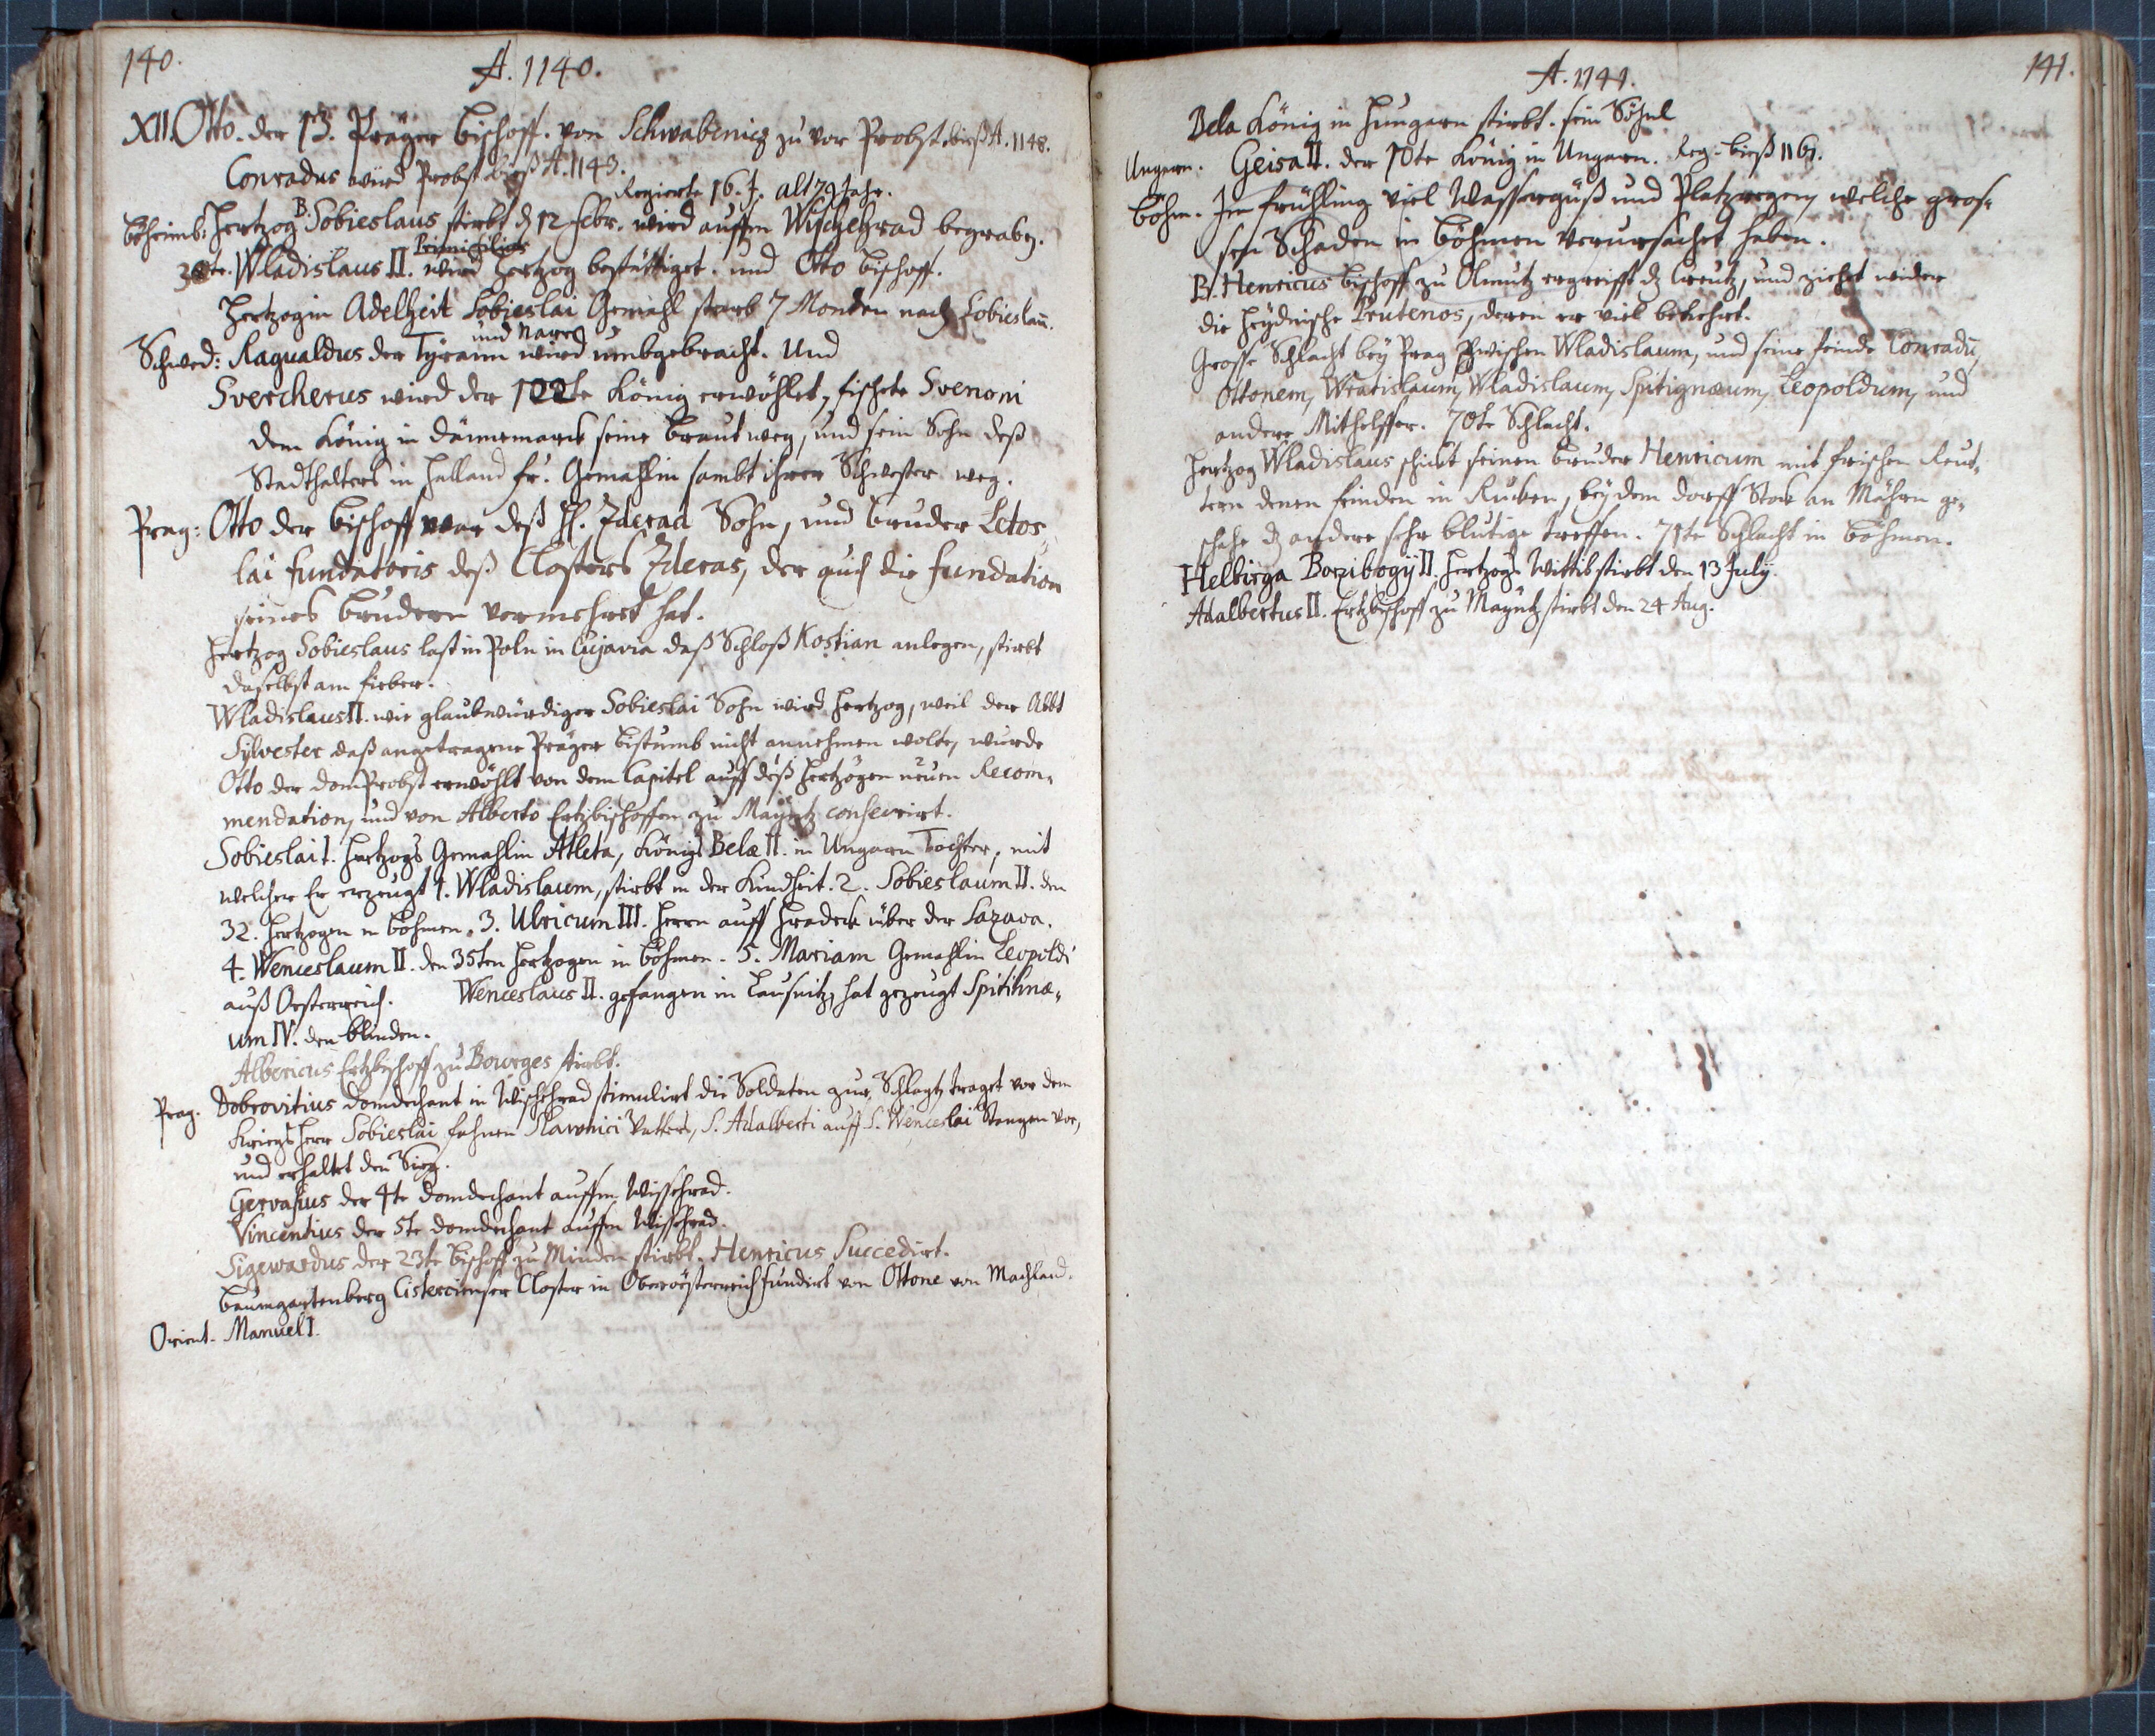 140.
A. 1140.
XII. Otto. der 13. Präger Bischoff. von Schwabenicz zu vor Probst bieß A. 1148.
Conradus wird Probst bieß A. 1143.
Regierte 16. J. alt 79 Jahr.
Böheimb: Hertzog B. Sobieslaus stirbt den 12 Febr. wird auffm Wischehrad begraben.
Wladislaus II. wird Hertzog bestättiget. und Otto Bischoff.
Hertzogin Adelheit Sobieslai Gemahl starb 7 Monden nach Sobieslau.
Schwed: Ragualdus der Tyrann und Narr wird umbgebracht. Und
Svercherus wird der König erwöhlet, fischete Svenoni
dem König in Dännemarck seine Braut weg, und sein Sohn deß
Stadthalters in Halland Gemahlin sambt ihrer Schwester weg.
Prag: Otto der Bischoff war deß H. Zderad Sohn, und Bruder Letos
lai fundatoris deß Closters Zderas, der auch die fundation
seines Brudern vermehret hat.
Hertzog Sobieslaus last in Poln in Cujavia daß Schloß Kostian anlegen, stirbt
daselbst am fieber.
Wladislaus II. wie glaubwürdiger Sobieslai Sohn wird Hertzog, weil der Abbt
Sylvester daß angetragene Präger Bistumb nicht annehmen wolte, wurde
Otto der domProbst erwöhlt von dem Capitel auff deß Hertzogen neuen Recom,
mendation, und von Alberto Ertzbischoffen zu Mayntz consecrirt.
Sobieslai I. Hertzogs Gemahlin Atleta, Königs Belæ II. in Ungarn Tochter, mit
welcher Er erzeugt 1. Wladislaum, stirbt in der Kindheit. 2. Sobieslaum II. den
32. Hertzogen in Böhmen. 3. Ulricum III. Herrn auff Hradeck über der Sazava.
4. Wenceslaum II. den 35ten Hertzogen in Böhmen. 5. Mariam Gemahlin Leopoldi
auß Oesterreich. Wenceslaus II. gefangen in Lausnitz, hat gezeugt Spitihnæ,
um IV. den blinden.
Albericus Ertzbischoff zu Bourges stirbt.
Prag. Dobrovitius domdechant in Wischehrad stimulirt die Soldaten zur Schlagt, traget vor dem
KriegsHerr Sobieslai fahnen Slavnici Vatters, S. Adalberti auff S. Wenceslai Stangen vor,
und erhaltet den Sieg.
Gervasius der 4te domdechant auffm Wissehrad.
Vincentius der 5te domdechant auffm Wissehrad.
Sigewardus der 23te Bischoff zu Minden stirbt. Henricus Succedirt.
Baumgartenberg Cistercienser Closter in Oberösterreich fundirt von Ottone von Machland.
Orient. Manuel I.
A. 1141.
141.
Bela König in Hungarn stirbt. sein Söhnl
Ungern. Geisa II. der 10te König in Ungarn. Reg. bieß 1161.
Böhm. Im frühling viel Wassergüß und Platzregen, welche gros,
sen Schaden in Böhmen verursachet haben.
B. Henricus Bischoff zu Olmutz ergreifft dz Creutz, und ziehet wider
die heydnische Prutenos, deren er viel bekehrt.
Grosse Schlacht bey Prag zwischen Wladislaum, und seine feinde Conradū,
Ottonem, Wratislaum, Wladislaum, Spitignæum, Leopoldum, und
andere Mithelffer. 70te Schlacht.
Hertzog Wladislaus schickt seinen Bruder Henricum mit frischen Reut,
tern denen feinden in Rucken, bey dem dorff Stock an Mähren ge,
schahe dz andere sehr blutige treffen. 71te Schlacht in Böhmen.
Helbirga Borzibogÿ II. Hertzogs Wittib stirbt den 13 July.
Adalbertus II. Ertzbischoff zu Mayntz stirbt den 24 Aug.